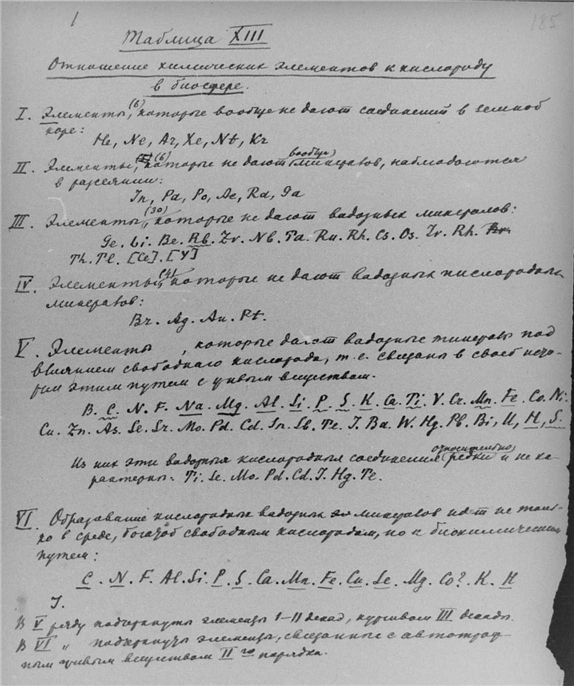 1
185
Таблица XIII
Отношение химических элементов к кислороду
в биосфере.
I. Элементы,(6) которые вообще не дают соединений в земной
коре:
He, Ne, Ar, Xe, Nt, Kr
II. Элементы,(6) которые не дают вообще минералов, наблюдаются
в рассеянии:
In, Pa, Po, Ac, Ra, Ga
III. Элементы,(20) которые не дают вадозных минералов:
Ge. Li. Be. Rb. Zr. Nb. Ta. Ru. Rh. Cs. Os. Ir. Rh.
Th. Tl. [Ce]. [Y]
IV. Элементы, которые не дают вадозных кислородных
минералов:
Br. Ag. Au. Pt.
V. Элементы , которые дают вадозные минералы под
влиянием свободного кислорода, т.е. связаны в своей
этим путем с живым веществом.
B. C. N. F. Na. Mg. Al. Si. P. S. K. Ca. Ti. V. Cr. Mn. Fe. Co. Ni.
Cu. Zn. As. Se. Sr. Mo. Pd. Cd. In. Sb. Te. J. Ba. W. Hg. Pb. Bi, U, H, S.
Из них эти вадозные кислородные соединения (относительно) редки и не ха-
рактерны: Ti. Se. Mo. Pd. Cd. J. Hg. Te.
VI. Образование кислородных вадозных минералов идет не толь-
ко в среде, богатой свободным кислородом, но и биохимическим
путем:
C. N. F. Al. Si. P. S. Ca. Mn. Fe. Cu. Se. Mg. Co?. K. H
J.
В V ряду подчеркнуты элементы I–II декад, курсивом III декады.
В VI " подчеркнуты элементы, связанные с автотроф-
ным живым веществом II го порядка.